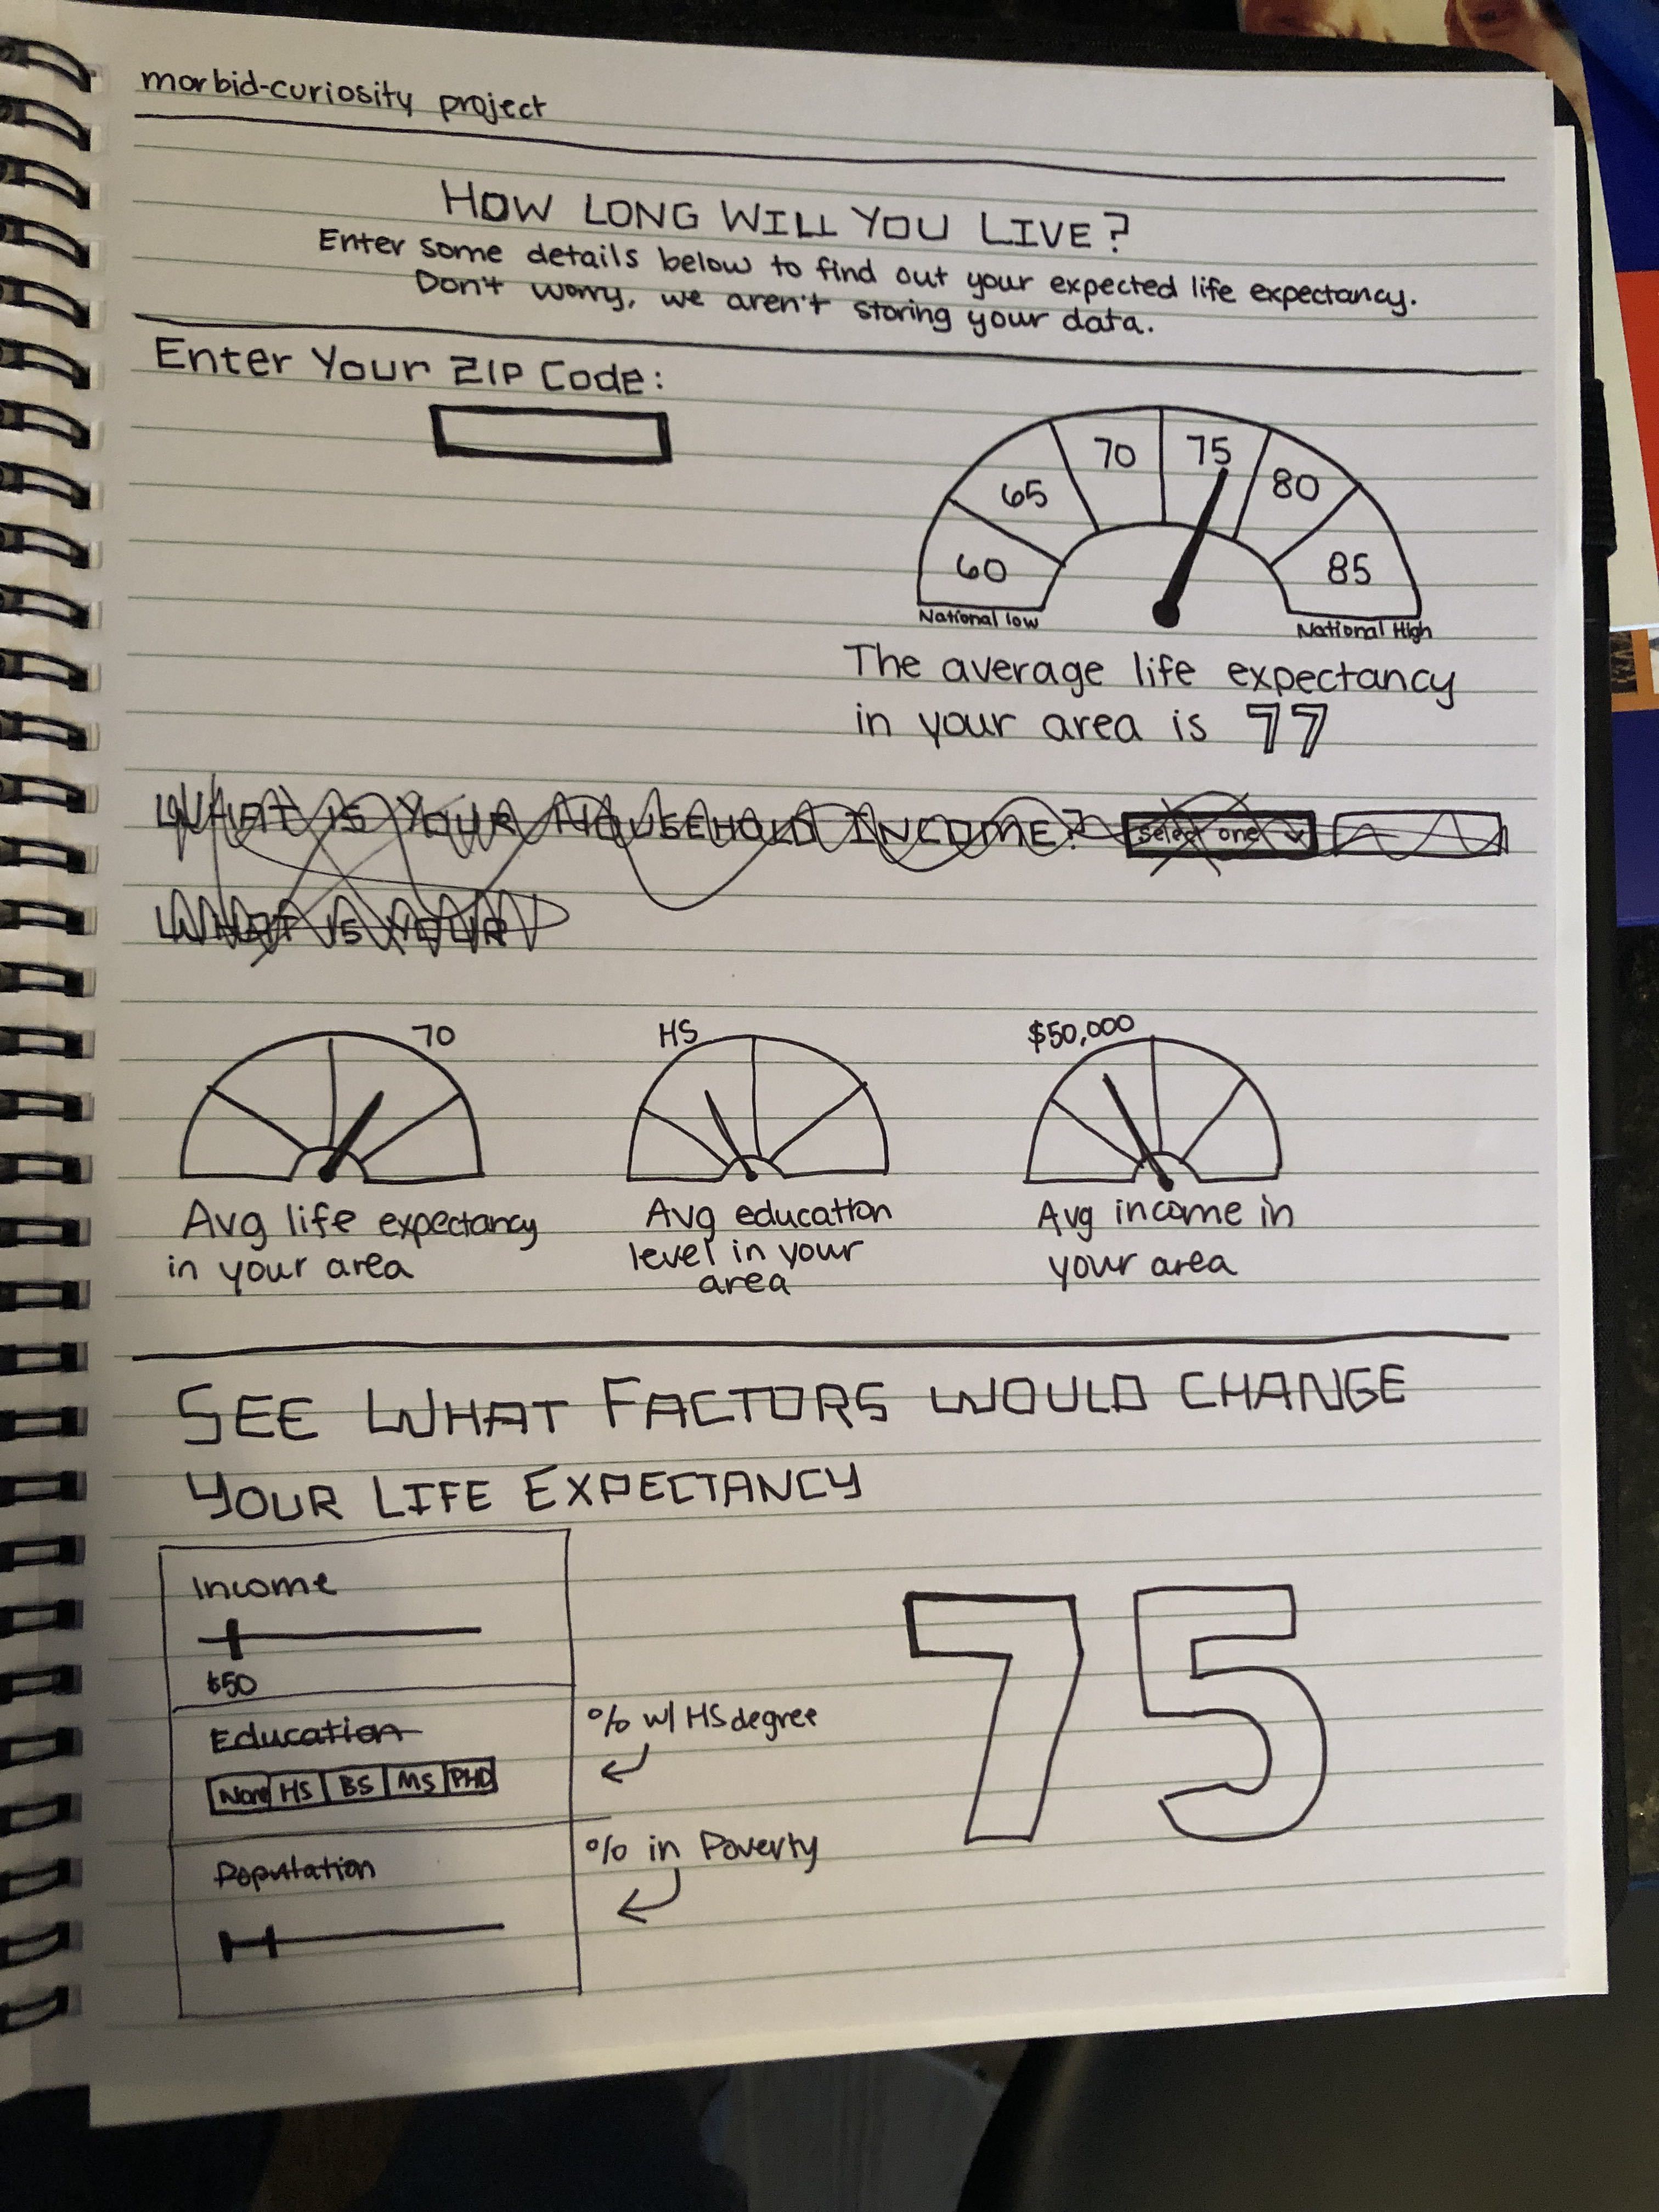 morbid-curiosity project
HOW LONG WILL YOU LIVE?
Enter some details below to find out your expected life expectancy.
Don't worry, we aren't storing your data.
Enter Your ZIP Code:
60
65
70
75
80
85
National low
National High
The average life expectancy
in your area is 77
WHAT IS YOUR HOUSEHOLD INCOME? Select one
WHAT IS YOUR
70
HS
$50,000
Avg life expectancy
in your area
Avg education
level in your
area
Avg income in
your area
SEE WHAT FACTORS WOULD CHANGE
YOUR LIFE EXPECTANCY
Income
$50
Education
None HS BS MS PHD
% w/ HS degree
Population
% in Poverty
75